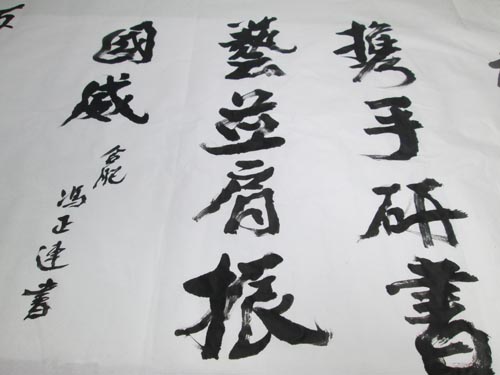 携手研書
藝並肩振
國威
合肥
馮正達書